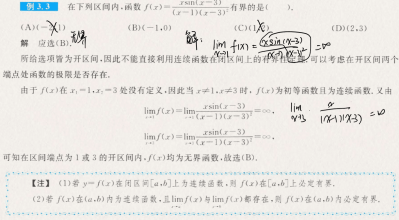 例 3.3 在下列区间内,函数 f(x)=\frac{x\sin(x-3)}{(x-1)(x-3)^2} 有界的是( ).
(A)(-2,1) (B)(-1,0) (C)(1,2) (D)(2,3)
解 应选(B).
解: \lim_{x→1} f(x)= \frac{x\sin(x-3)}{(x-1)(x-3)^2} =∞
所给选项皆为开区间,因此不能直接利用连续函数在闭区间上的有界性定理,可以考虑在开区间两个
端点处函数的极限是否存在.
由于 f(x)在 x_1=1,x_2=3 处没有定义,因此当 x≠1,x≠3 时,f(x)为初等函数且为连续函数.又由
\lim_{x→1}f(x)=\lim_{x→1}\frac{x\sin(x-3)}{(x-1)(x-3)^2}=∞,
\lim_{x→3} \frac{x}{(x-1)(x-3)} =∞
\lim_{x→3}f(x)=\lim_{x→3}\frac{x\sin(x-3)}{(x-1)(x-3)^2}=∞,
可知在区间端点为 1 或 3 的开区间内,f(x)均为无界函数,故选(B).
【注】 (1)若 y=f(x)在闭区间[a,b]上为连续函数,则 f(x)在[a,b]上必定有界.
(2)若 f(x)在(a,b)内为连续函数,且\lim f(x)与\lim f(x)都存在,则 f(x)在(a,b)内必定有界.